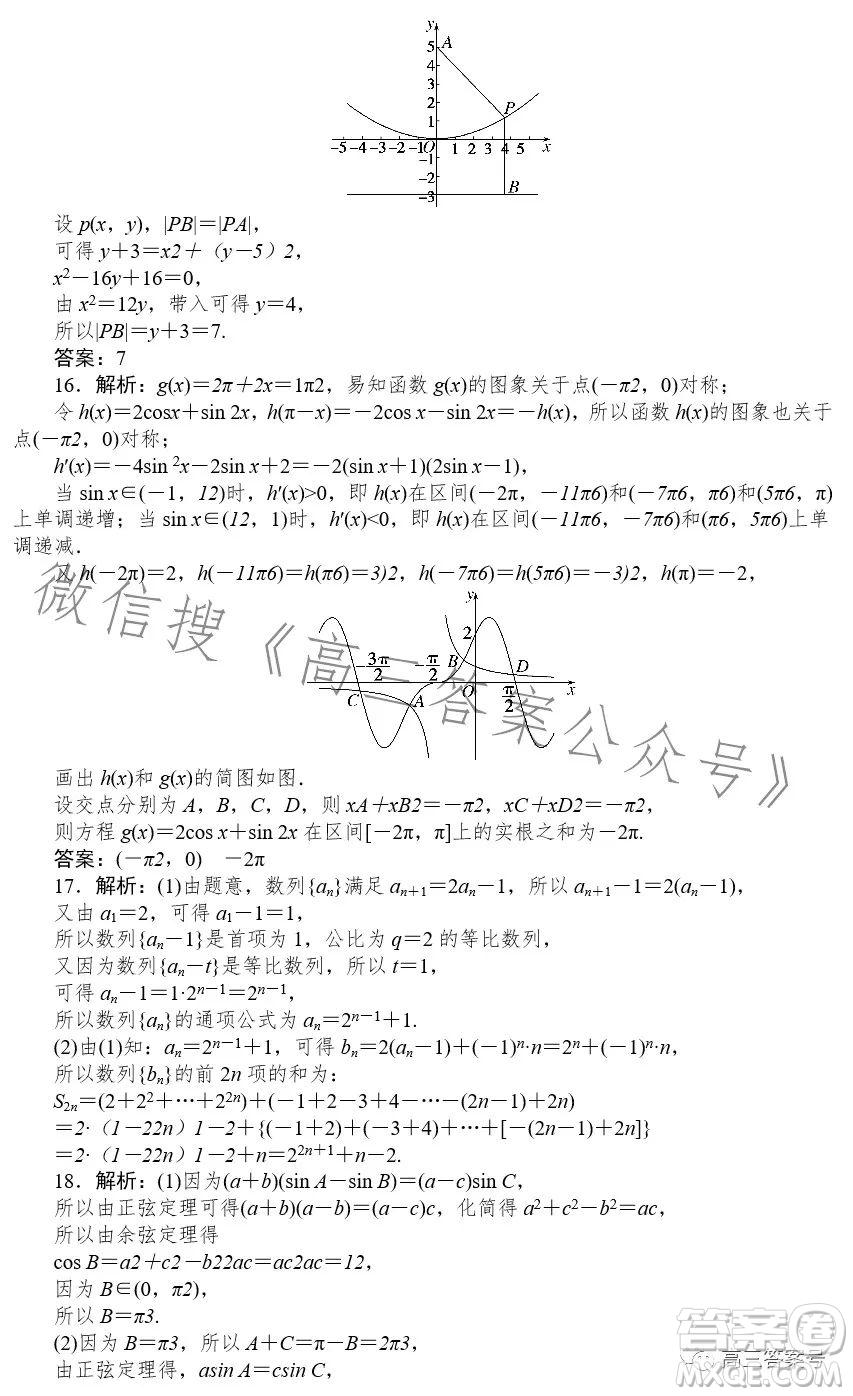 y
5 A
4
3
2
P
1
-5 -4 -3 -2 -1 O 1 2 3 4 5 x
-1
-2 B
-3
设 p(x，y)，|PB|＝|PA|，
可得 y＋3＝x2＋（y－5）2，
x²－16y＋16＝0，
由 x²＝12y，带入可得 y＝4，
所以|PB|＝y＋3＝7.
答案：7
16．解析：g(x)＝2π＋2x＝1π2，易知函数 g(x)的图象关于点(－π2，0)对称；
令 h(x)＝2cosx＋sin 2x，h(π－x)＝－2cos x－sin 2x＝－h(x)，所以函数 h(x)的图象也关于
点(－π2，0)对称；
h′(x)＝－4sin ²x－2sin x＋2＝－2(sin x＋1)(2sin x－1)，
当 sin x∈(－1，12)时，h′(x)>0，即 h(x)在区间(－2π，－11π6)和(－7π6，π6)和(5π6，π)
上单调递增；当 sin x∈(12，1)时，h′(x)<0，即 h(x)在区间(－11π6，－7π6)和(π6，5π6)上单
调递减．
又 h(－2π)＝2，h(－11π6)＝h(π6)＝3)2，h(－7π6)＝h(5π6)＝－3)2，h(π)＝－2，
y
2
－3π/2 －π/2 B D
C A O π/2 x
画出 h(x)和 g(x)的简图如图．
设交点分别为 A，B，C，D，则 xA＋xB2＝－π2，xC＋xD2＝－π2，
则方程 g(x)＝2cos x＋sin 2x 在区间[－2π，π]上的实根之和为－2π.
答案：(－π2，0) －2π
17．解析：(1)由题意，数列{aₙ}满足 aₙ₊₁＝2aₙ－1，所以 aₙ₊₁－1＝2(aₙ－1)，
又由 a₁＝2，可得 a₁－1＝1，
所以数列{aₙ－1}是首项为 1，公比为 q＝2 的等比数列，
又因为数列{aₙ－t}是等比数列，所以 t＝1，
可得 aₙ－1＝1·2ⁿ⁻¹＝2ⁿ⁻¹，
所以数列{aₙ}的通项公式为 aₙ＝2ⁿ⁻¹＋1.
(2)由(1)知：aₙ＝2ⁿ⁻¹＋1，可得 bₙ＝2(aₙ－1)＋(－1)ⁿ·n＝2ⁿ＋(－1)ⁿ·n，
所以数列{bₙ}的前 2n 项的和为：
S₂ₙ＝(2＋2²＋…＋2²ⁿ)＋(－1＋2－3＋4－…－(2n－1)＋2n)
＝2·（1－22n）1－2＋{(－1＋2)＋(－3＋4)＋…＋[－(2n－1)＋2n]}
＝2·（1－22n）1－2＋n＝2²ⁿ⁺¹＋n－2.
18．解析：(1)因为(a＋b)(sin A－sin B)＝(a－c)sin C，
所以由正弦定理可得(a＋b)(a－b)＝(a－c)c，化简得 a²＋c²－b²＝ac，
所以由余弦定理得
cos B＝a2＋c2－b22ac＝ac2ac＝12，
因为 B∈(0，π2)，
所以 B＝π3.
(2)因为 B＝π3，所以 A＋C＝π－B＝2π3，
由正弦定理得，asin A＝csin C，
微信搜《高三答案公众号》
答案圈
高三答案号
MXQE.COM